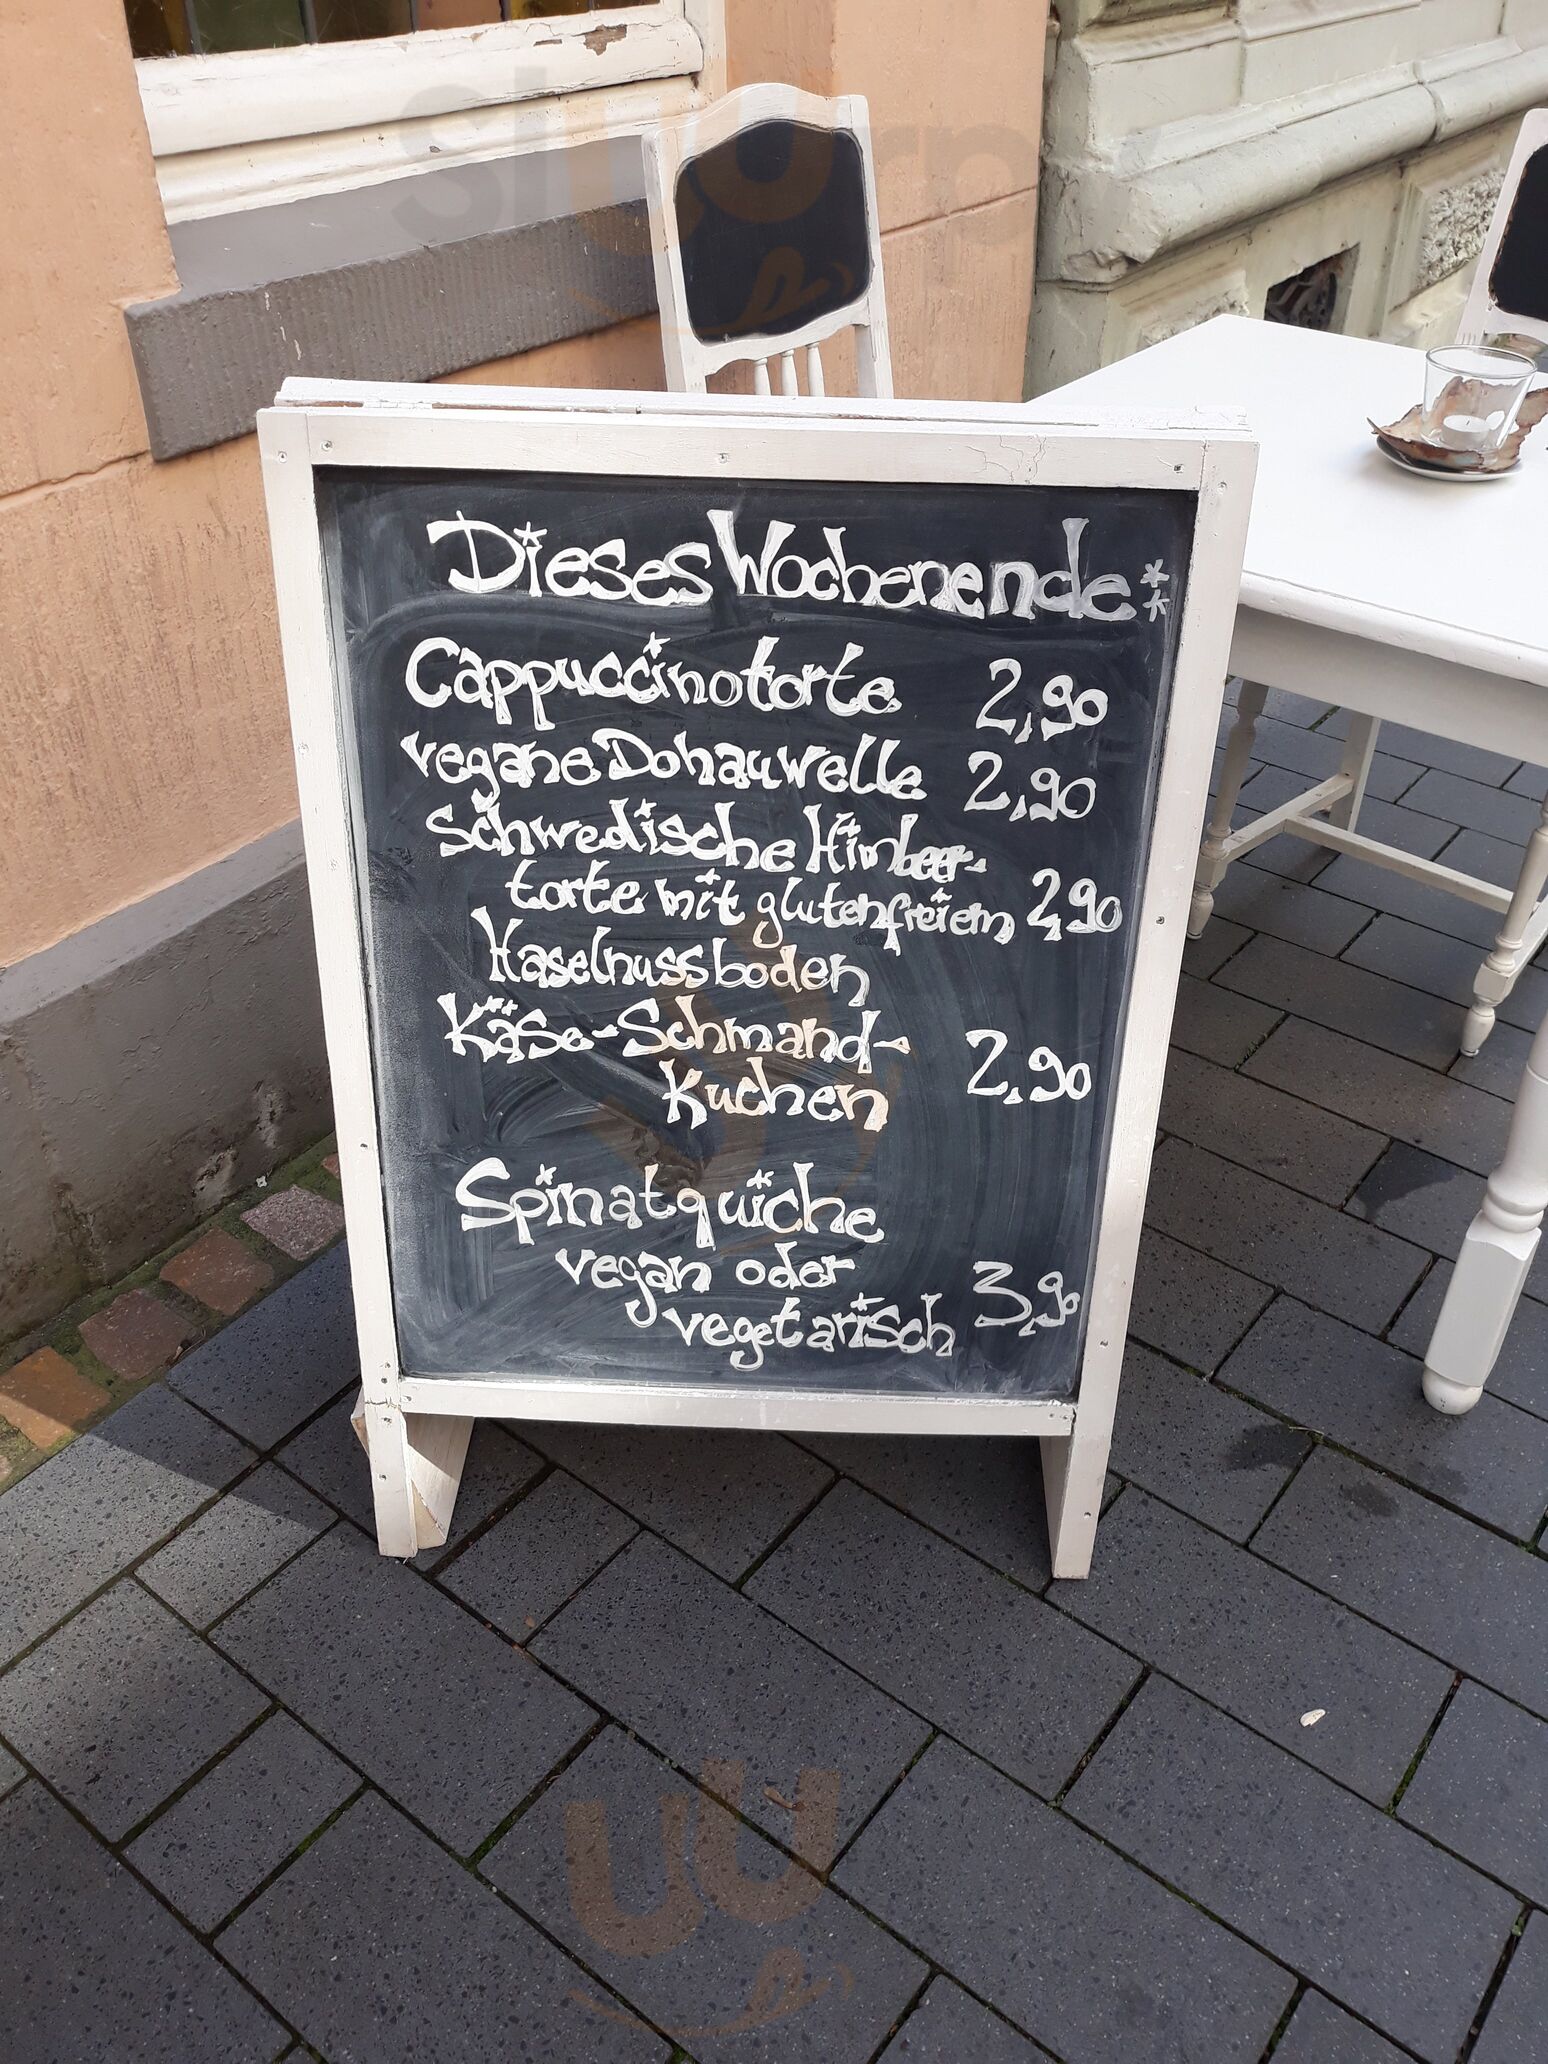 slurp
Dieses Wochenende:
Cappuccinotorte 2,90
vegane Donauwelle 2,90
Schwedische Himbeer-
torte mit glutenfreiem 2,90
Haselnussboden
Käse-Schmand-
Kuchen 2,90
Spinatquiche
vegan oder
vegetarisch 3,90